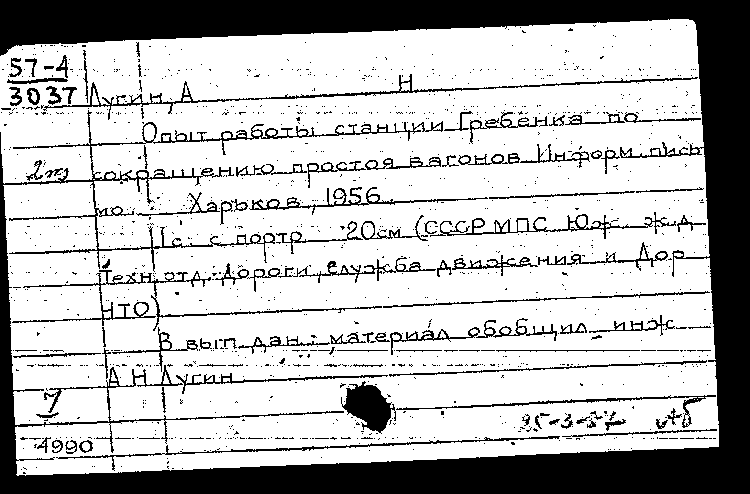 57-4
3037 Лугин, А Н
Опыт работы станции Гребенка по
2ж сокращению простоя вагонов. Информ. пись-
мо. Харьков, 1956.
1с. с портр. 20см (СССР МПС Юж. ж.д.
Техн. отд. Дороги, служба движения и Дор
НТО)
В вып. дан.: материал обобщил инж.
А Н Лугин
7
25-3-57
4990